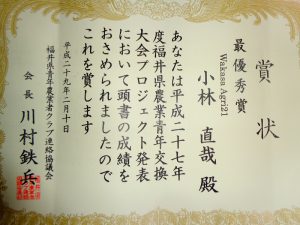 賞状
最優秀賞
Wakasa Agri21
小林 直哉 殿
あなたは平成二十七年
度福井県農業青年交換
大会プロジェクト発表
において頭書の成績を
おさめられましたので
これを賞します
平成二十九年二月十日
福井県青年農業者クラブ連絡協議会
会長 川村鉄兵